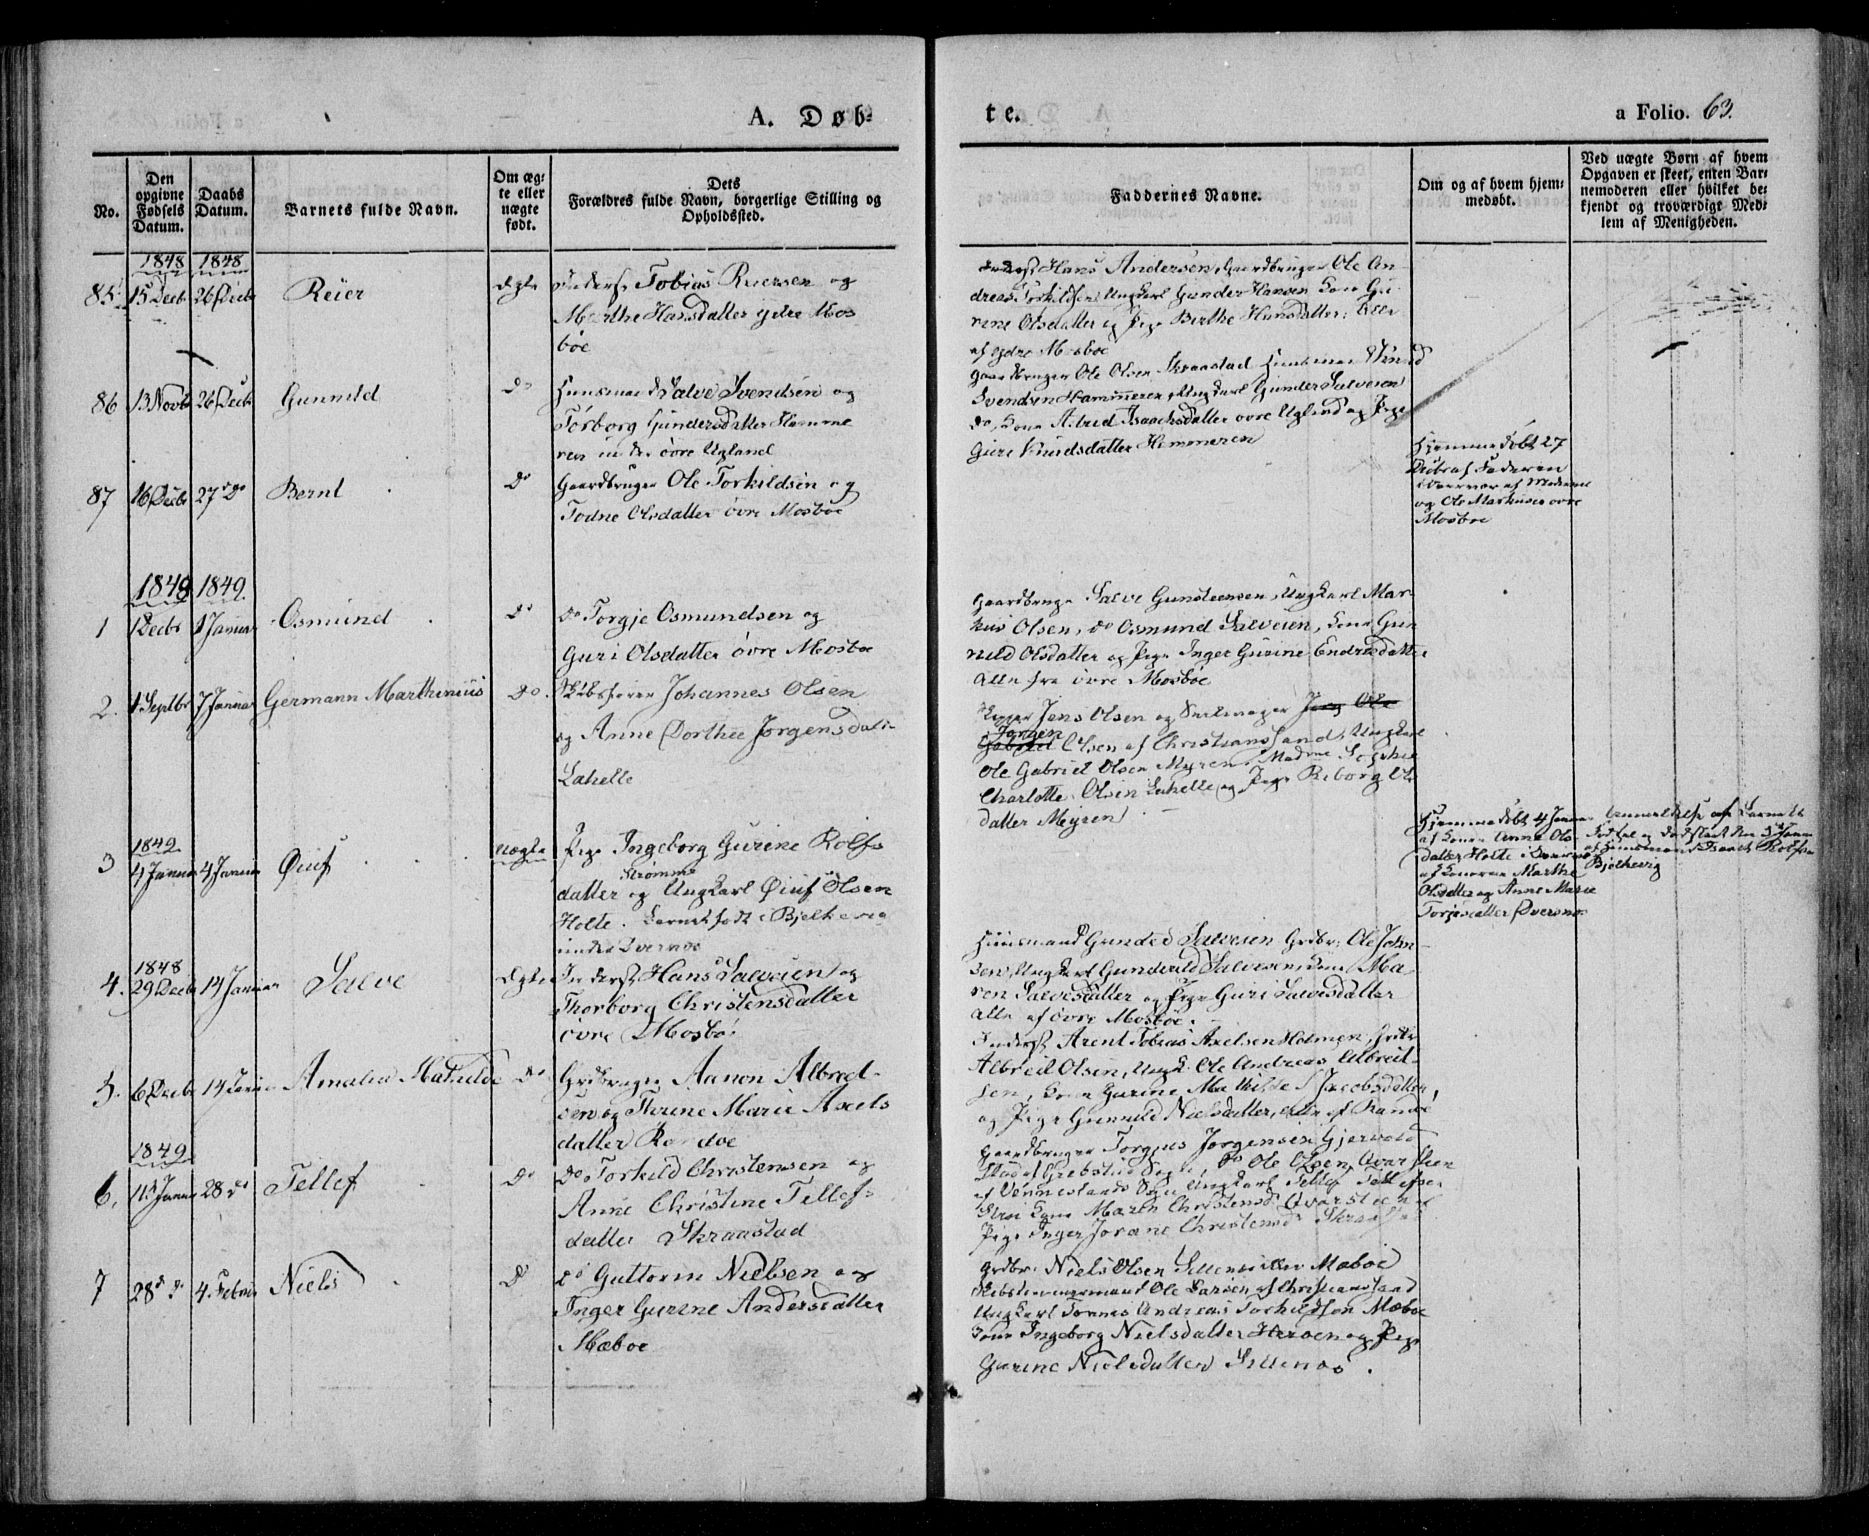 A. Døb-
te.
a Folio. 63.
No.
Den opgivne Fødsels Datum.
Daabs Datum.
Barnets fulde Navn.
Om ægte eller uægte født.
Dets Forældres fulde Navn, borgerlige Stilling og Opholdssted.
Faddernes Navne.
Om og af hvem hjemmedøbt.
Ved uægte Børn af hvem Opgaven er skeet, enten Barnemoderen eller hvilket bekjendt og troværdigt Medlem af Menigheden.
1848 1848
85 15 Decbr 26 Decbr Reier Ægte Inderst Tobias Reiersen og
Marthe Hansdatter ydre Mos
boe
Inderst Hans Andersen, Gaardbruger Ole An-
dreas Torkildsen, Ungkarl Gunder Hansen Kone Gu-
rine Olsdatter og Pige Birthe Hansdatter; alle
af ydre Mosboe
86 13 Novbr 26 Decbr Gunnild Do Huusmand Salve Svendsen og
Torborg Gundersdatter Hamme
ren under øvre Ugland
Gaardbruger Ole Olsen Skraastad Huusmand
Svendsen Hammeren, Ungkarl Gunder Salvesen
do, Kone Astrid Isaachsdatter øvre Ugland og Pige
Guri Knudsdatter Hammeren
87 16 Decbr 27 do Bernt Do Gaardbruger Ole Torkildsen og
Todne Olsdatter øvre Mosboe
Hjemmedøbt 27
Decbr af Faderen
i Overvær af Moderen
og Ole Markusen øvre
Mosboe
1848 1849.
1 1 Decbr 1 Januar Osmund Do Do Torgje Osmundsen og
Guri Olsdatter øvre Mosboe
Gaardbruger Salve Gunsteensen, Ungkarl Mar-
kus Olsen, do Osmund Salvesen, Kone Gun-
nild Olsdatter og Pige Inger Gurine Endresdatter
Alle fra øvre Mosboe
2. 1 Septbr 7 Januar Germann Marthinius Do. Skibsfører Johannes Olsen
og Anne Dorthee Jørgensdatr
Lahelle
Jens Olsen og
Jørgen
Olsen af Christianssand, Ungkarl
Ole Gabriel Olsen Myren, Madme Sophie
Charlotte Olsen Lahelle og Pige Reborg Ols
datter Myren
1849
3 4 Januar 4 Januar Øiuf uægte Pige Ingeborg Gurine Rolfs
Strømme
datter og Ungkarl Øiuf Olsen
Holte. Barnet født i Bjelkevig
under Dversnæs
Hjemmedøbt 4 Januar
af Kone Anne Ols-
datter Holte i Overvær
af Konerne Marthe
Olsdatter og Anne Marie
Torjesdatter Dversnæs
Anmeldelse om Barnets
Fødsel og Daab skeet den Janu
af Huusmand Isaach Rolfsen
Bjelkevig
1848
4. 29 Decbr 14 Januar Salve Ægte Inderst Hans Salvesen og
Thorborg Christensdatter
øvre Mosboe
Huusmand Gunder Salvesen Grdbr: Ole John-
sen, Ungkarl Gunvald Salvesen, Kone Ma
ren Salvesdatter og Pige Guri Salvesdatter
alle af øvre Mosboe.
5. 6 Decbr 14 Januar Amalia Mathilde Do Grdbruger Aanon Albred-
sen og Thrine Marie Axels
datter Randøe
Inderst Arent Tobias Axelsen Holmen,
Albreit Olsen, Ungk. Ole Andreas Albreit-
sen, Kone Gurine Mathilde Jacobsdatter,
og Pige Gunnild Nielsdatter, alle af Randøe
1849
6. 13 Januar 28 do Tellef Do Do Torkild Christensen og
Anne Christine Tellefs-
datter Skraastad
Gaardbruger Torgius Jørgensen Gjervold-
stad af Greebstad Sogn, Do Ole Olsen Qvarsteen
af Venneslands Sogn Ungkarl Tellef Tellefsen
Kone Maren Christensd Qvarsteen
Pige Inger Jorane Christensd Skraastad
7 28 do 4. Februar Niels Do Do Guttorm Nielsen og
Inger Gurine Andersdatter
Mæboe
Grdbr. Niels Olsen Mæboe
Skibstømmermand Ole Larsen af Christianssand
Ungkarl Tønnes Andreas Torkildsen Mæboe
Kone Ingeborg Nielsdatter Herøen og Pige
Gurine Nielsdatter